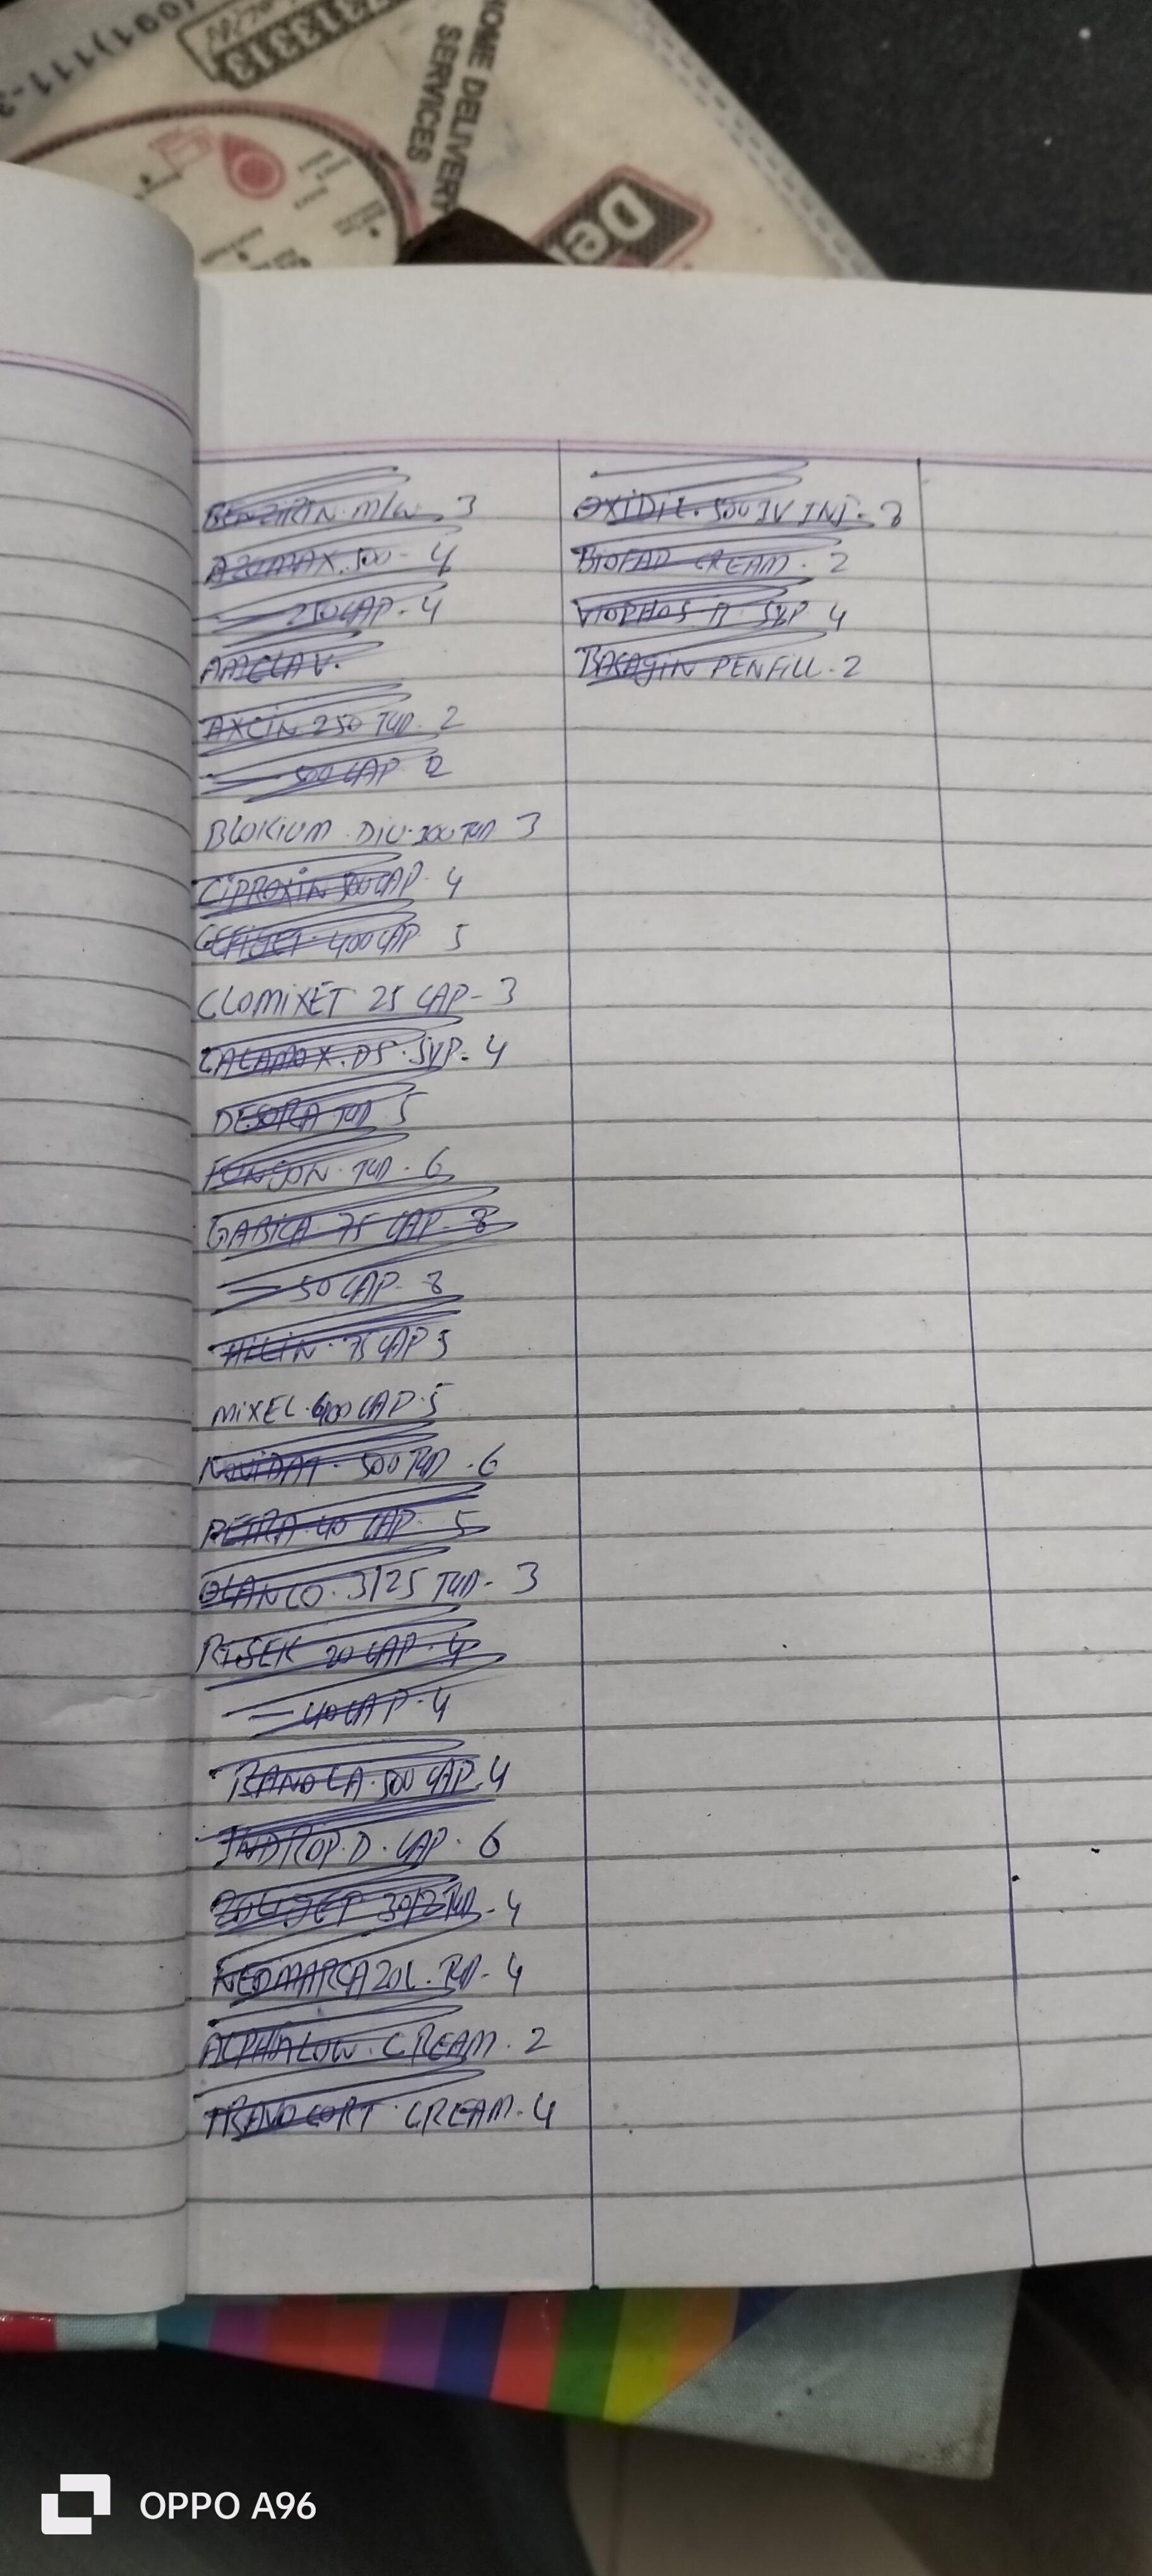 313313
HOME DELIVERY
SERVICES
De
BENZIRIN M/W 3
AZOMAX 500 - 4
250 CAP - 4
AMCLAV.
AXCIN 250 TAB. 2
500 CAP 2
BLOKIUM DIU. TAB 3
CIPROXIN 500 CAP. 4
CEFIGET 400 CAP 5
CLOMIXET 25 CAP - 3
CALAMOX. DS. SYP. 4
DESORA TAB 5
TAB. 6
GABICA 75 CAP - 8
50 CAP - 8
HILIN. 75 CAP 5
MIXEL. 400 CAP. 5
NOVIDAT. 500 TAB. 6
40 CAP. 5
OLANCO. 3/25 TAB - 3
RISEK 20 CAP. 4
40 CAP. 4
500 CAP 4
INDROP. D. CAP. 6
TAB - 4
NEOMARCAZOL. TAB - 4
CREAM. 2
TRAVOCORT CREAM. 4
OXIDIL. 500 IV INJ. 8
BIOFAD CREAM. 2
SYP 4
BASAGIN PENFILL. 2
OPPO A96